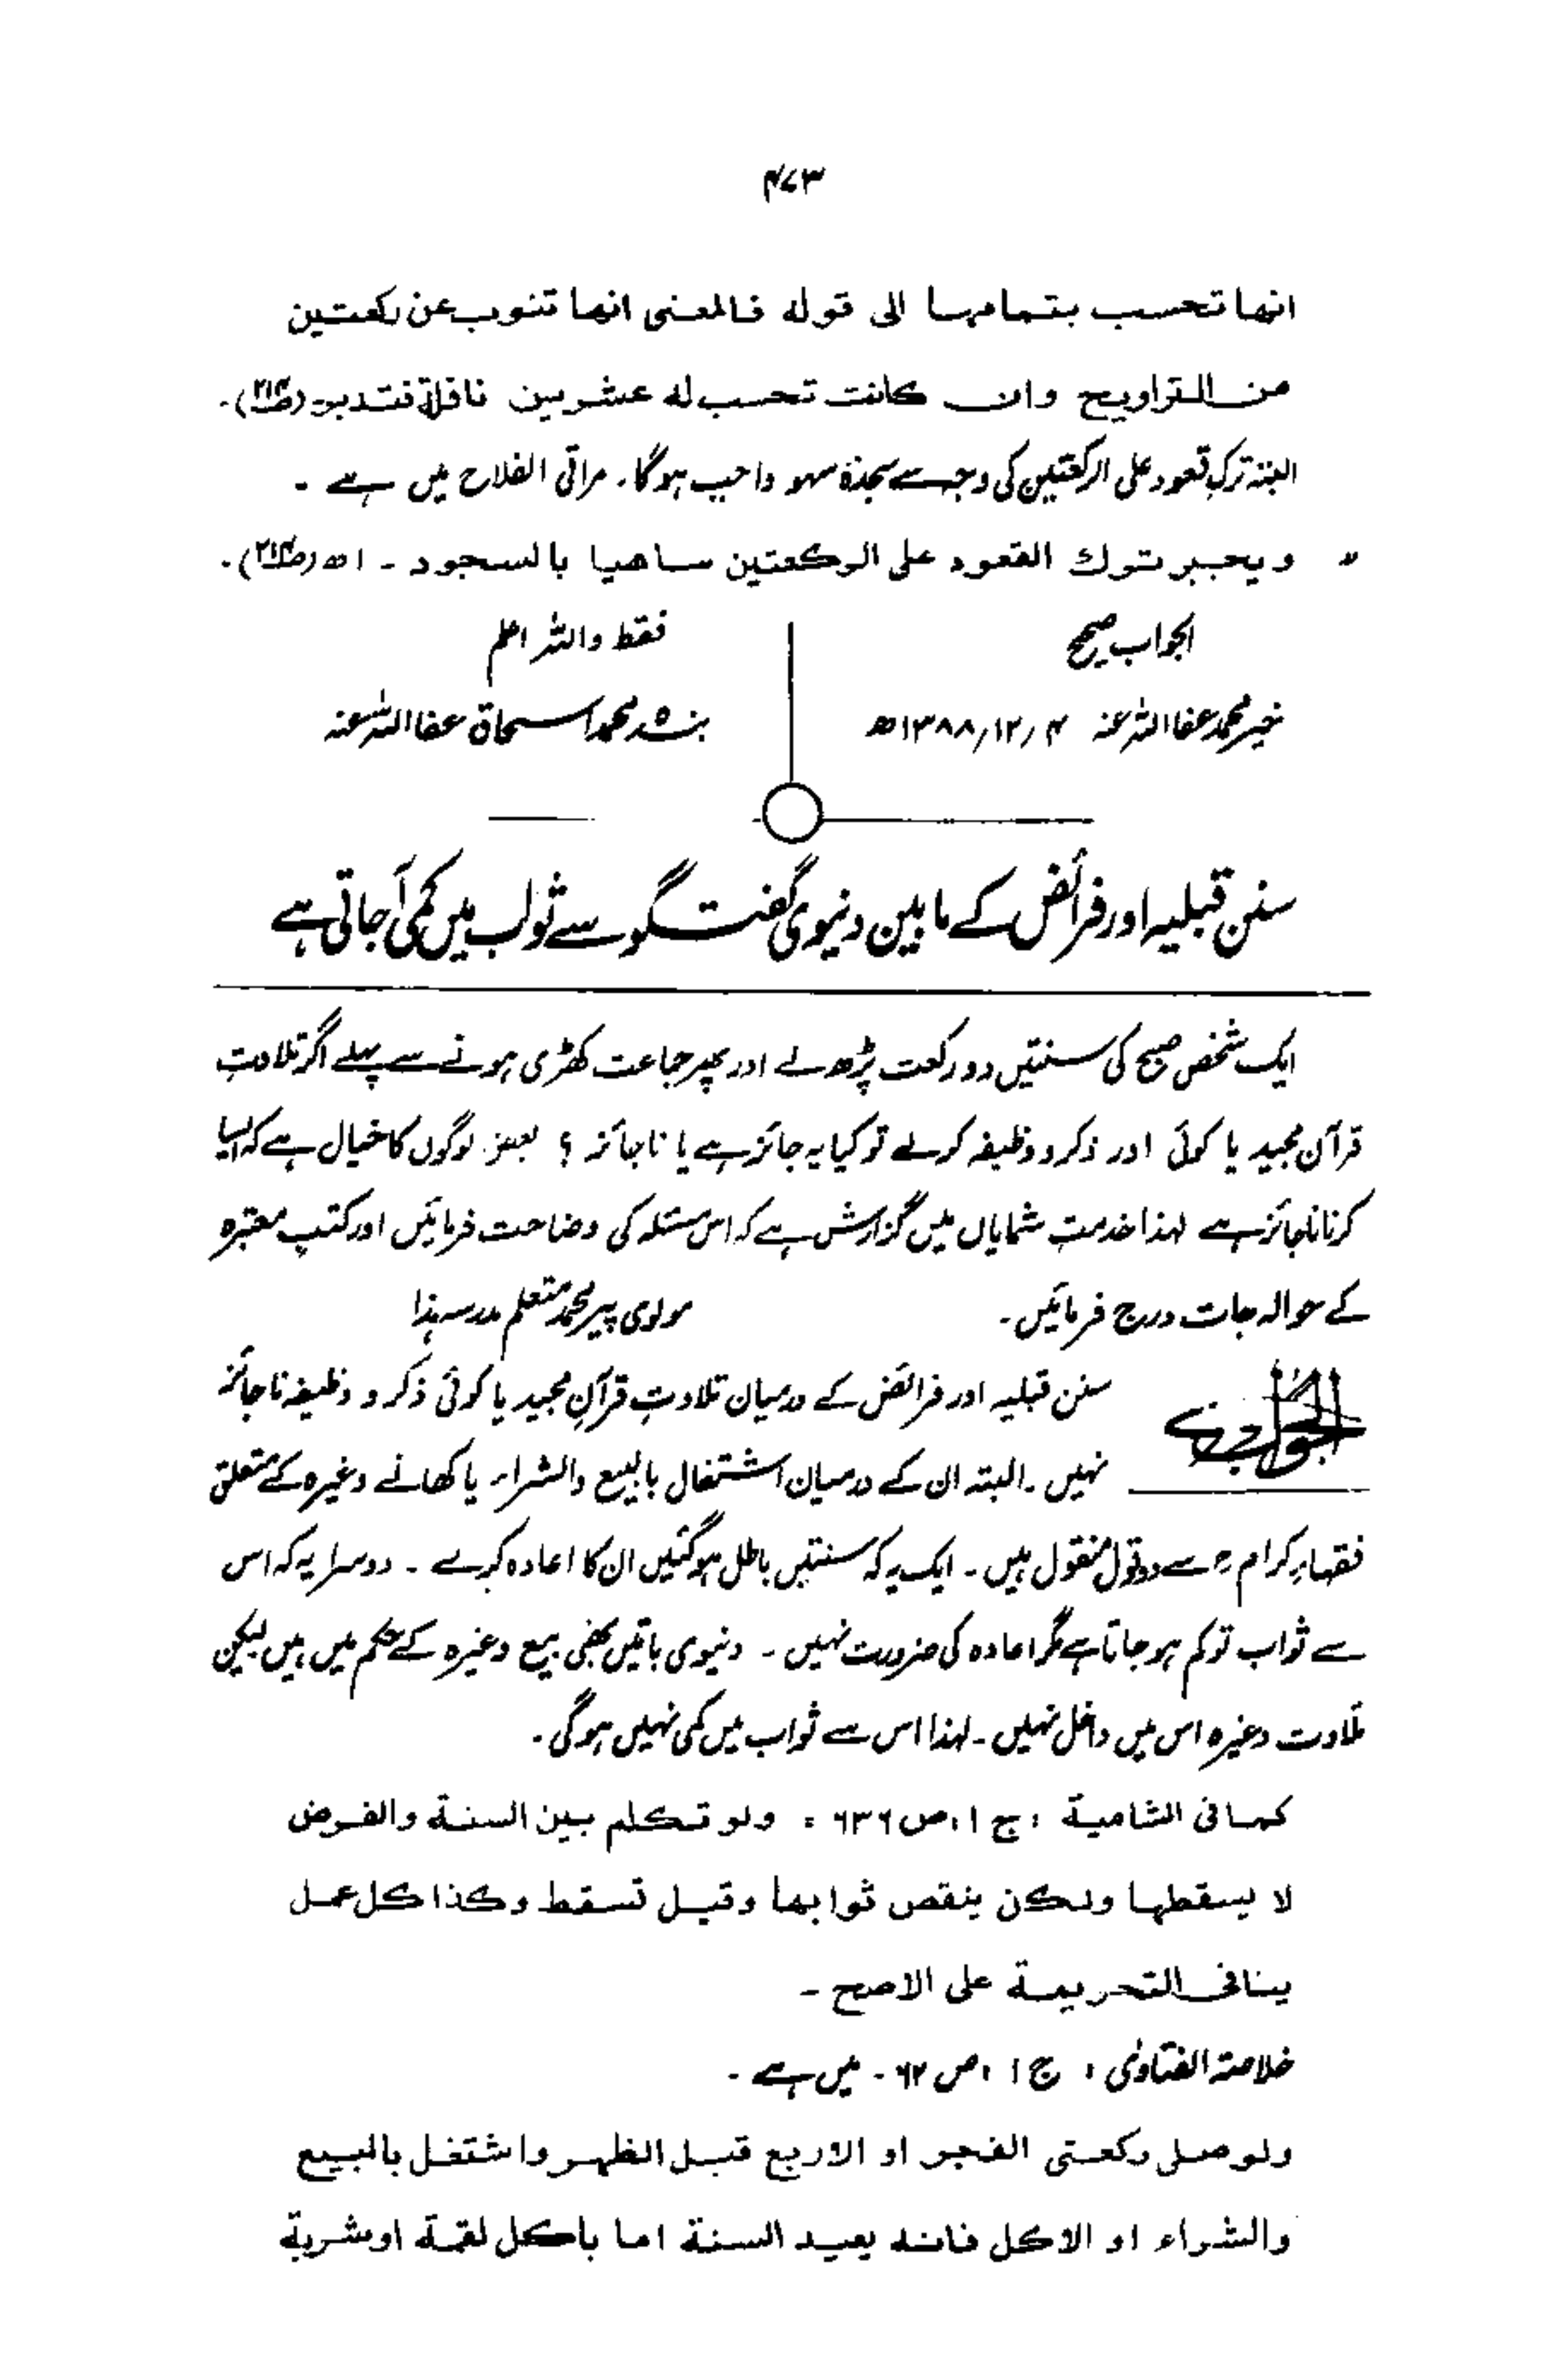 ۴۷۳
انها تحسب بتمامها الى قوله فالمعنى انها تنوب عن ركعتين
من التراويح وان كانت تحسب له عشرين نافلة فتدبر (ص۲۱۴)۔
البتہ ترکِ قعود علی الرکعتین کی وجہ سے سجدۂ سہو واجب ہوگا۔ مراقی الفلاح میں ہے ۔
" ويجبر ترك القعود على الركعتين ساهيا بالسجود ۔ اھ (ص۲۱۴)۔
الجواب صحیح
فقط واللہ اعلم
خیر محمد عفا اللہ عنہ ۴ /۱۲/ ۱۳۸۸ھ
بندہ محمد اسحاق عفا اللہ عنہ
سنن قبلیہ اور فرائض کے مابین دنیوی گفتگو سے ثواب میں کمی آجاتی ہے
ایک شخص صبح کی سنتیں دو رکعت پڑھ لے اور پھر جماعت کھڑی ہونے سے پہلے اگر تلاوتِ
قرآن مجید یا کوئی اور ذکر و وظیفہ کرلے تو کیا یہ جائز ہے یا ناجائز ؟ بعض لوگوں کا خیال ہے کہ ایسا
کرنا ناجائز ہے لہذا خدمتِ شایاں میں گزارش ہے کہ اس مسئلہ کی وضاحت فرمائیں اور کتب معتبرہ
کے حوالہ جات درج فرمائیں۔
مولوی پیر محمد متعلم مدرسہ ہذا
الجواب
سنن قبلیہ اور فرائض کے درمیان تلاوتِ قرآنِ مجید یا کوئی ذکر و وظیفہ ناجائز
نہیں ۔ البتہ ان کے درمیان اشتغال بالبیع والشراء یا کھانے وغیرہ کے متعلق
فقہاء کرام رح سے دو قول منقول ہیں ۔ ایک یہ کہ سنتیں باطل ہوگئیں ان کا اعادہ کرے ۔ دوسرا یہ کہ اس
سے ثواب تو کم ہوجاتا ہے مگر اعادہ کی ضرورت نہیں ۔ دنیوی باتیں بھی بیع وغیرہ کے حکم میں ہیں لیکن
تلاوت وغیرہ اس میں داخل نہیں ۔ لہذا اس سے ثواب میں کمی نہیں ہوگی ۔
كما فى الشامية ، ج ۱، ص ۶۳۶ : ولو تكلم بين السنة والفرض
لا يسقطها ولكن ينقص ثوابها وقيل تسقط وكذا كل عمل
ينافى التحريمة على الاصح ۔
خلاصۃ الفتاوٰی ، ج ۱ ، ص ۶۲ ۔ میں ہے ۔
ولو صلى ركعتى الفجر او الاربع قبل الظهر واشتغل بالبيع
والشراء او الاكل فانه يعيد السنة اما باكل لقمة او شربة